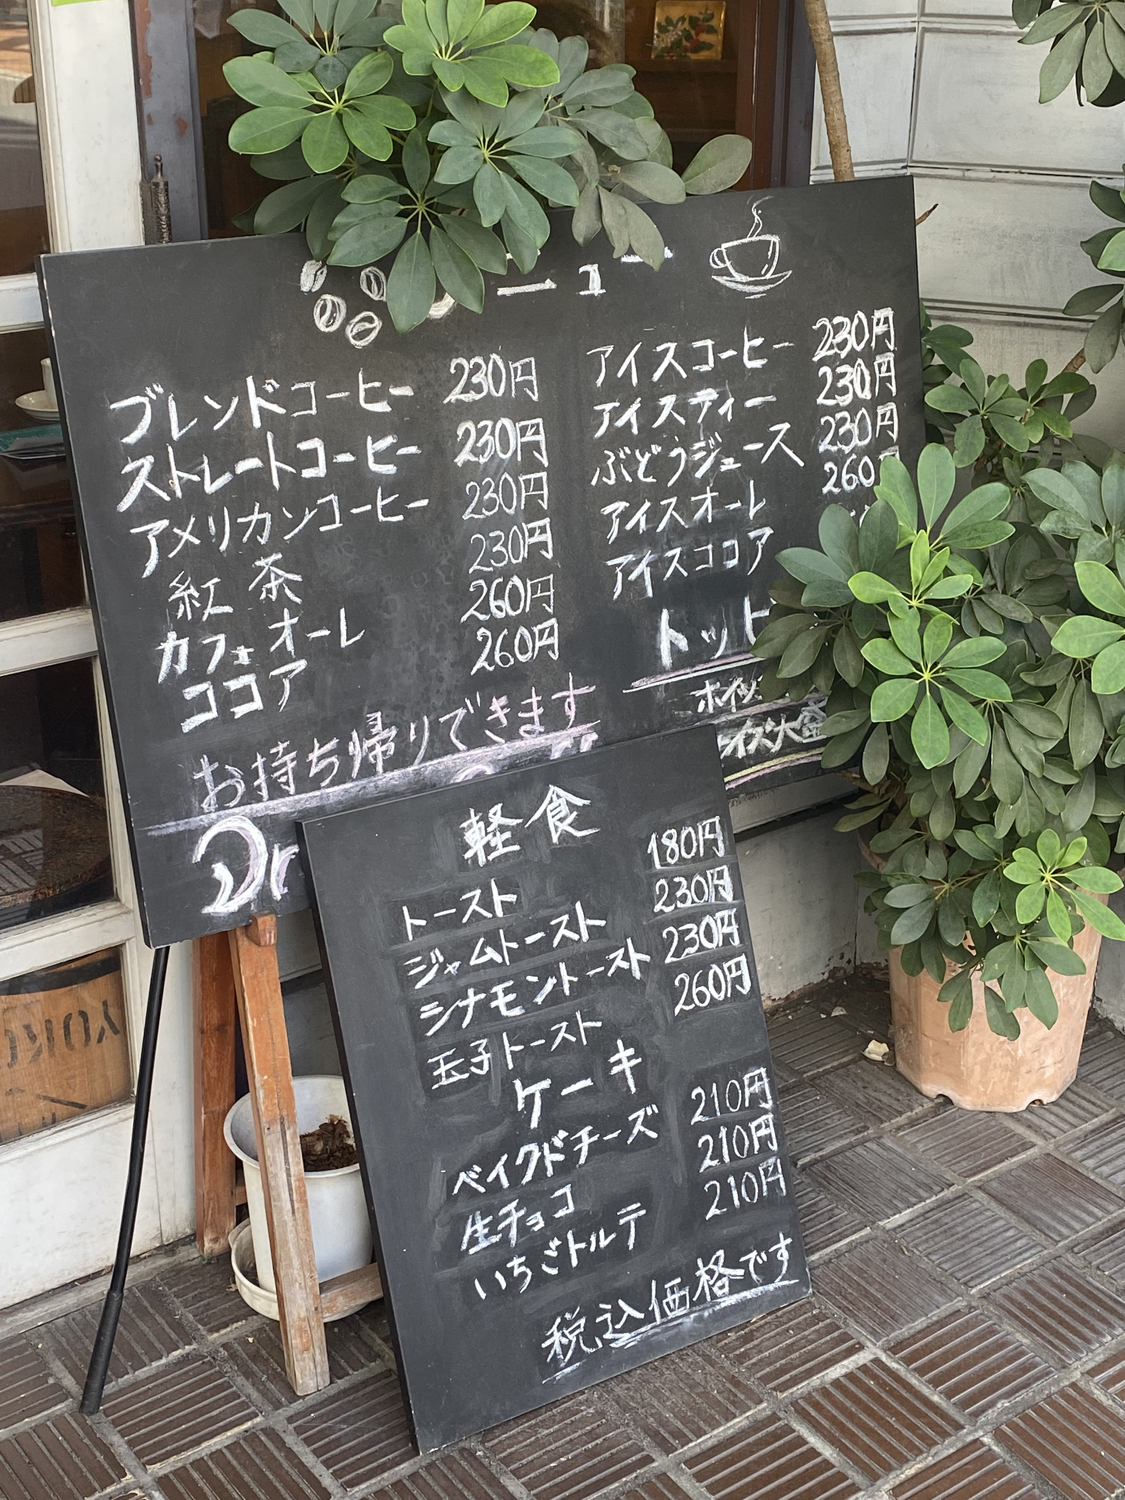 ブレンドコーヒー 230円
ストレートコーヒー 230円
アメリカンコーヒー 230円
紅茶 230円
カフェオーレ 260円
ココア 260円
お持ち帰りできます
アイスコーヒー 230円
アイスティー 230円
ぶどうジュース 230円
アイスオーレ 260
アイスココア
トッピ
ホイッ
Dr
軽食
トースト 180円
ジャムトースト 230円
シナモントースト 230円
玉子トースト 260円
ケーキ
ベイクドチーズ 210円
生チョコ 210円
いちごトルテ 210円
税込価格です